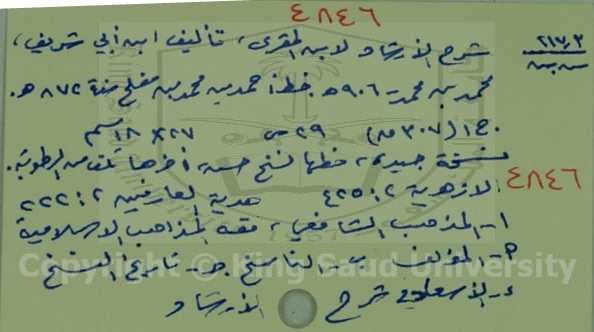 ٤٨٤٦
٢١٧٫٣
شرح الإرشاد لابن المقري، تأليف ابن أبي شريف،
محمد بن محمد - ٩٠٦ هـ. خط أحمد بن محمد بن مفلح سنة ٨٧٢ هـ.
ج ١ (٣٠٧ ق) ٢٩ س ٢٧ × ١٨ سم
نسخة جيدة، خطها نسخ حسن، آخرها تلف من الرطوبة.
٤٨٤٦
الأزهرية ٢: ٤٢٥ هدية العارفين ٢: ٢٢٢
١- المذهب الشافعي، فقه المذاهب الإسلامية
أ- المؤلف ب- الناسخ ج- تاريخ النسخ
د- شرح الإرشاد
Copyright © King Saud University